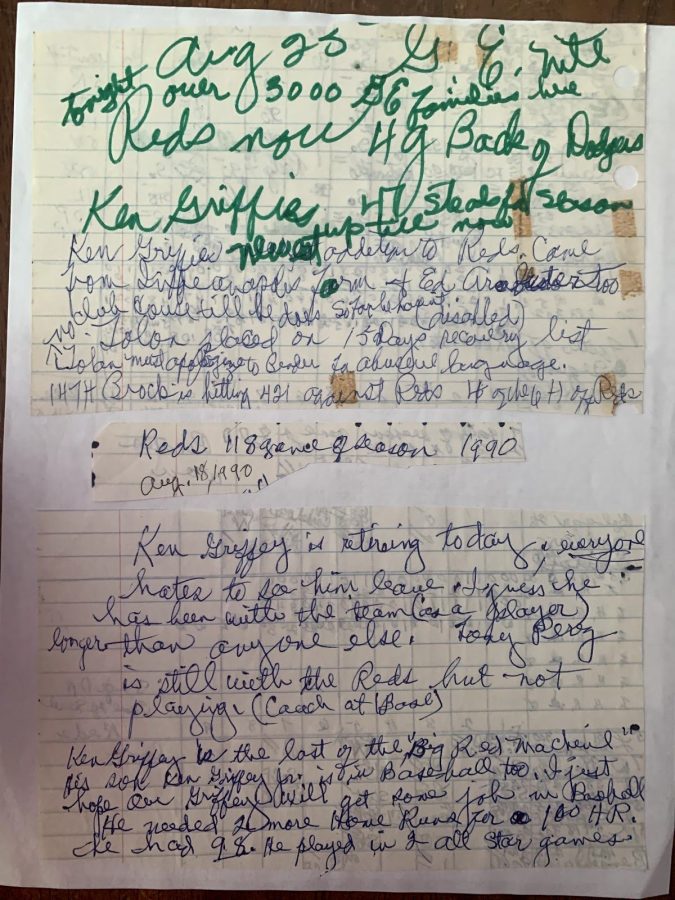 Aug 25 G. E. Nite
tonight over 3000 GE Families here
Reds now 4 g Back of Dodgers
Ken Griffies 47 Steals for Season
up till now
Ken Griffies newest addition to Reds. Came
from Indianapolis farm & Ed too
club till he does So far he hasnt (disabled)
Tolan placed on 15 days recovery list
Tolan must apologize to Bender for abuseful language.
1974 Brock is hitting 421 against Reds 4 of the 6 H off Reds
Reds 118 game of season 1990
Aug. 18, 1990
Ken Griffey is retiring today, & everyone
hates to see him leave. I guess he
has been with the team (as a player)
longer than anyone else. Tony Perez
is still with the Reds but not
playing. (Coach at 1 Base)
Ken Griffey is the last of the "Big Red Macheine"
His son Ken Griffey Jr. is in Baseball too. I just
hope our Griffey will get some job in Baseball
He needed 2 more Home Runs for a 100 HR.
he had 98. He played in 2 all Star games.